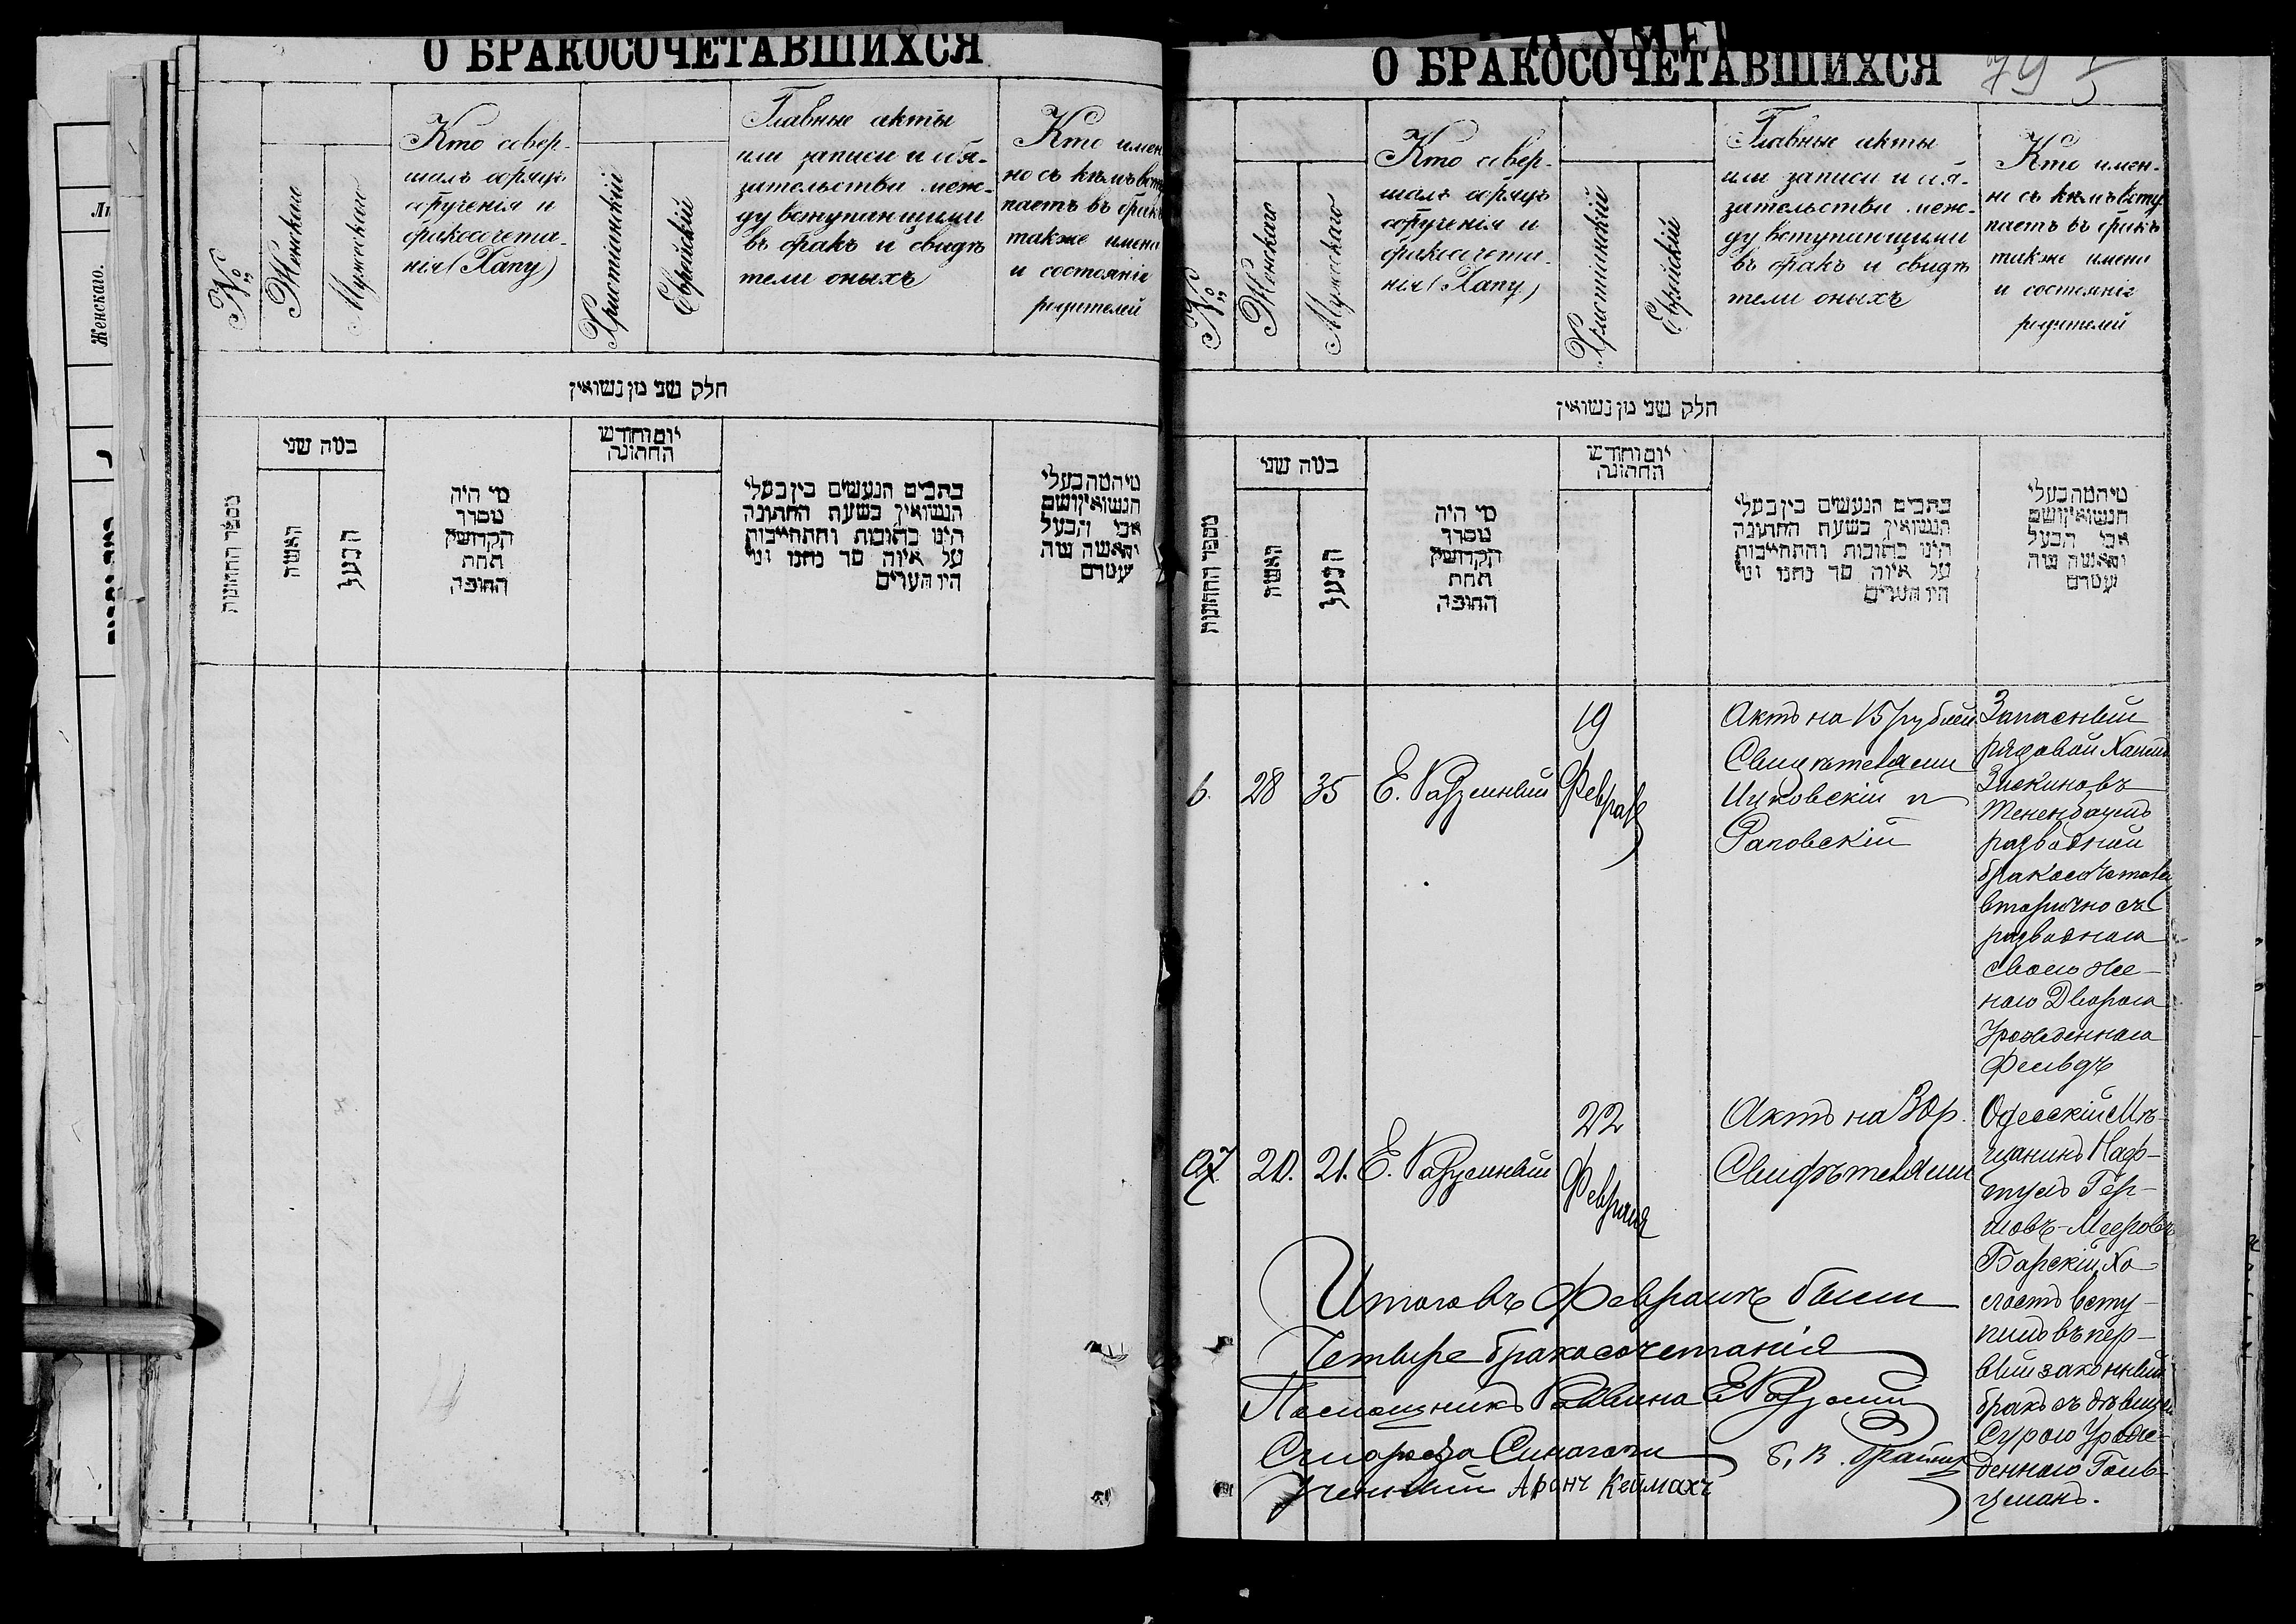 О БРАКОСОЧЕТАВШИХСЯ
№
Женскаго
Мужескаго
Кто совер-
шалъ обрядъ
обрученія и
бракосочета-
нія (Хапу)
Христіанскій
Еврейскій
Главные акты
или записи и обя-
зательства меж-
ду вступающими
въ бракъ и свидѣ
тели оныхъ
Кто имен
но съ кѣмъ всту
паетъ въ бракъ
также имена
и состояніе
родителей
Женскаго.
חלק שני מן נשואין
מספר החתונות
במה שני
האשה
הבעל
מי היה
מסדר
הקדושין
תחת
החופה
יום וחודש
החתונה
כתבים הנעשים בין בעלי
הנשואין בשעת החתונה
היינו כתובות והתחייבות
על איזה סך נתנו ומי
היו העדים
מי המה בעלי
הנשואין ושם
אבי הבעל
והאשה מה
עמדם
О БРАКОСОЧЕТАВШИХСЯ
79
№
Женскаго
Мужескаго
Кто совер-
шалъ обрядъ
обрученія и
бракосочета-
нія (Хапу)
Христіанскій
Еврейскій
Главные акты
или записи и обя-
зательства меж-
ду вступающими
въ бракъ и свидѣ
тели оныхъ
Кто имен-
но съ кѣмъ всту
паетъ въ бракъ
также имена
и состояніе
родителей
חלק שני מן נשואין
מספר החתונות
במה שני
האשה
הבעל
מי היה
מסדר
הקדושין
תחת
החופה
יום וחודש
החתונה
כתבים הנעשים בין בעלי
הנשואין בשעת החתונה
היינו כתובות והתחייבות
על איזה סך נתנו ומי
היו העדים
מי המה בעלי
הנשואין ושם
אבי הבעל
והאשה מה
עמדם
6. 28 35 Е.
19
Февраля
Актъ на 15 рублей
Свидѣтелями
и
Раповскій
Запасный
рядовой Хаимъ
Зискиновъ
Тененбаумъ
разводной
бракосочетался
вторично съ
разводною
своею же-
ною Дворою
Урожденною
Фельдъ
7. 20. 21. Е.
22
Февраля
Актъ на 30 р.
Свидѣтелями
Одесскій Мѣ-
щанинъ Наф-
тулъ Гер-
шовъ-Мееровъ
Барскій Хо-
лостъ всту-
пилъ въ пер-
вый законный
бракъ съ дѣвицею
Сурою Урож-
денною Голь-
цманъ.
Итого въ Февралѣ были
Четыре бракосочетанія
Помощникъ Раввина Е
Староста Синагоги
Ученый Аронъ Кеймахъ